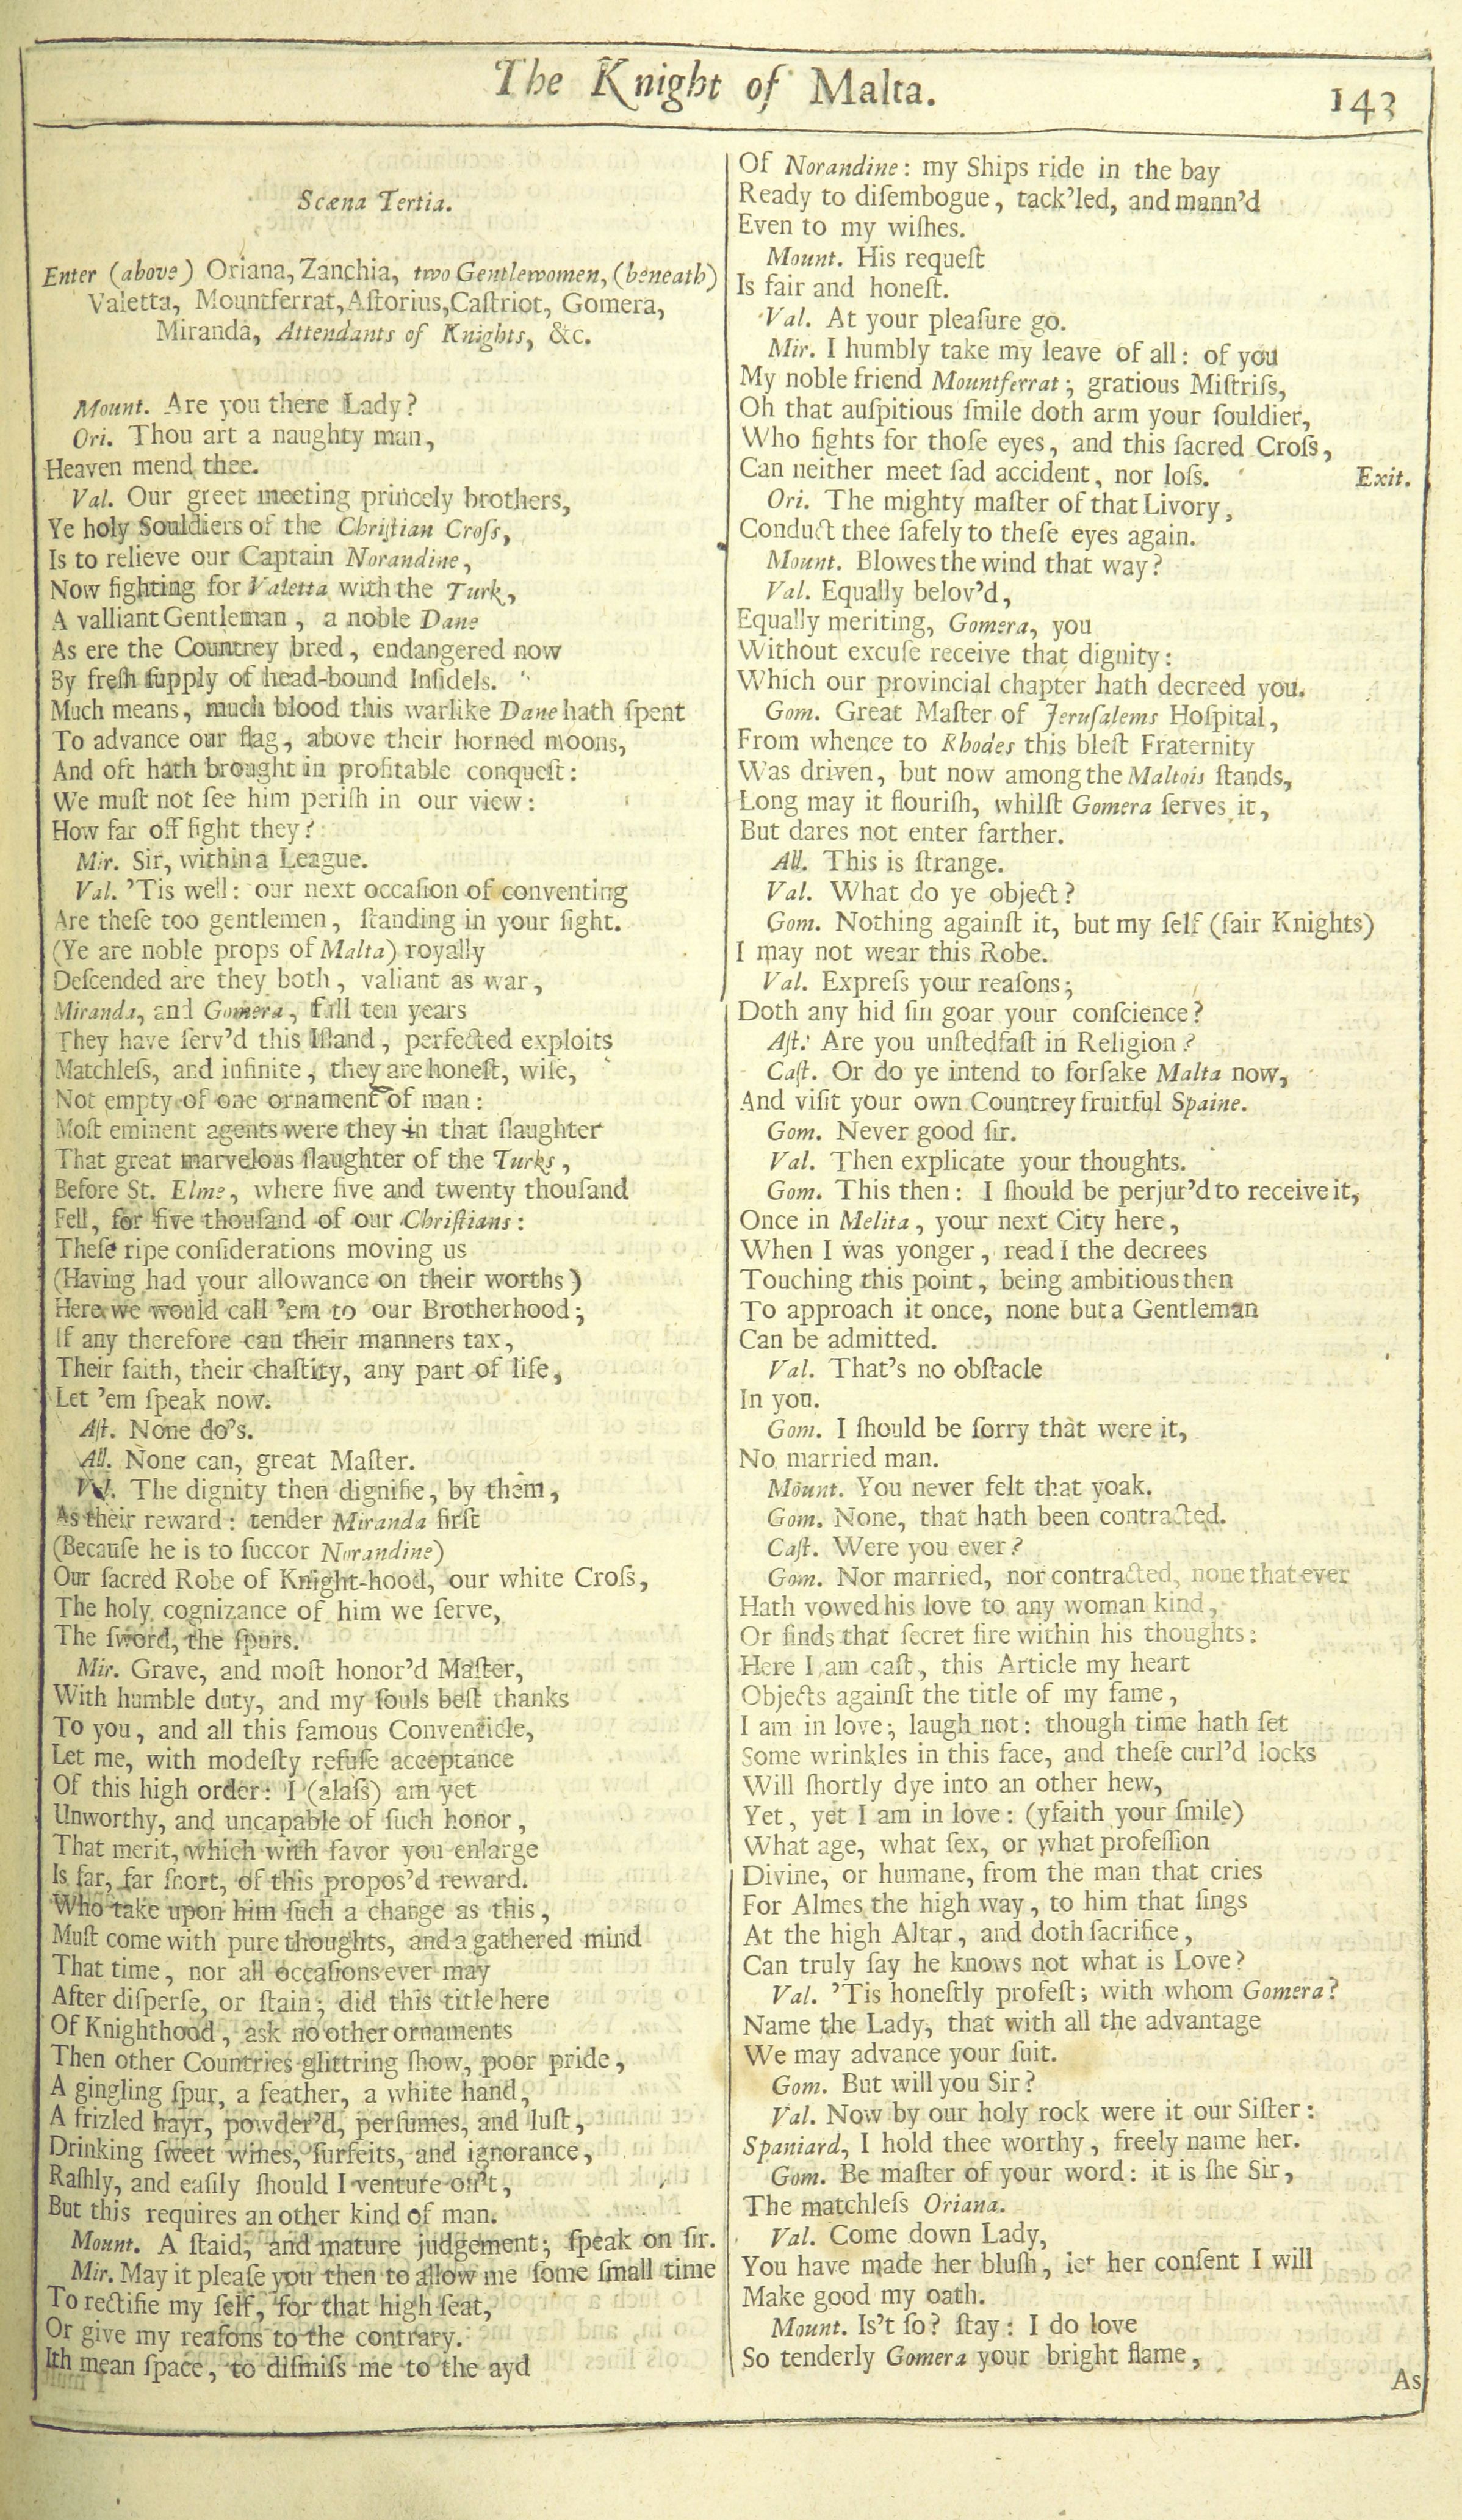 The Knight of Malta.
143
Scæna Tertia.
Enter (above) Oriana, Zanchia, two Gentlewomen, (beneath)
Valetta, Mountferrat, Aſtorius, Caſtriot, Gomera,
Miranda, Attendants of Knights, &c.
Mount. Are you there Lady?
Ori. Thou art a naughty man,
Heaven mend thee.
Val. Our greet meeting princely brothers,
Ye holy Souldiers of the Chriſtian Croſs,
Is to relieve our Captain Norandine,
Now fighting for Valetta with the Turk,
A valliant Gentleman, a noble Dane
As ere the Countrey bred, endangered now
By freſh ſupply of head-bound Infidels.
Much means, much blood this warlike Dane hath ſpent
To advance our flag, above their horned moons,
And oft hath brought in profitable conqueſt:
We muſt not ſee him periſh in our view:
How far off fight they?
Mir. Sir, within a League.
Val. 'Tis well: our next occaſion of conventing
Are theſe too gentlemen, ſtanding in your ſight.
(Ye are noble props of Malta) royally
Deſcended are they both, valiant as war,
Miranda, and Gomera, full ten years
They have ſerv'd this Iſland, perfected exploits
Matchleſs, and infinite, they are honeſt, wiſe,
Not empty of one ornament of man:
Moſt eminent agents were they in that ſlaughter
That great marvelous ſlaughter of the Turks,
Before St. Elme, where five and twenty thouſand
Fell, for five thouſand of our Chriſtians:
Theſe ripe conſiderations moving us
(Having had your allowance on their worths)
Here we would call 'em to our Brotherhood;
If any therefore can their manners tax,
Their faith, their chaſtity, any part of life,
Let 'em ſpeak now.
Aſt. None do's.
All. None can, great Maſter.
Val. The dignity then dignifie, by them,
As their reward: tender Miranda firſt
(Becauſe he is to ſuccor Norandine)
Our ſacred Robe of Knight-hood, our white Croſs,
The holy cognizance of him we ſerve,
The ſword, the ſpurs.
Mir. Grave, and moſt honor'd Maſter,
With humble duty, and my ſouls beſt thanks
To you, and all this famous Conventicle,
Let me, with modeſty refuſe acceptance
Of this high order: I (alaſs) am yet
Unworthy, and uncapable of ſuch honor,
That merit, which with favor you enlarge
Is far, far ſhort, of this propos'd reward.
Who take upon him ſuch a charge as this,
Muſt come with pure thoughts, and a gathered mind
That time, nor all occaſions ever may
After diſperſe, or ſtain; did this title here
Of Knighthood, ask no other ornaments
Then other Countries glittring ſhow, poor pride,
A gingling ſpur, a feather, a white hand,
A frizled hayr, powder'd, perfumes, and luſt,
Drinking ſweet wines, ſurfeits, and ignorance,
Raſhly, and eaſily ſhould I venture on't,
But this requires an other kind of man.
Mount. A ſtaid, and mature judgement; ſpeak on ſir.
Mir. May it pleaſe you then to allow me ſome ſmall time
To rectifie my ſelf, for that high ſeat,
Or give my reaſons to the contrary.
Ith mean ſpace, to diſmiſs me to the ayd
Of Norandine: my Ships ride in the bay
Ready to diſembogue, tack'led, and mann'd
Even to my wiſhes.
Mount. His requeſt
Is fair and honeſt.
Val. At your pleaſure go.
Mir. I humbly take my leave of all: of you
My noble friend Mountferrat; gratious Miſtriſs,
Oh that auſpitious ſmile doth arm your ſouldier,
Who fights for thoſe eyes, and this ſacred Croſs,
Can neither meet ſad accident, nor loſs. Exit.
Ori. The mighty maſter of that Livory,
Conduct thee ſafely to theſe eyes again.
Mount. Blowes the wind that way?
Val. Equally belov'd,
Equally meriting, Gomera, you
Without excuſe receive that dignity:
Which our provincial chapter hath decreed you.
Gom. Great Maſter of Jeruſalems Hoſpital,
From whence to Rhodes this bleſt Fraternity
Was driven, but now among the Maltois ſtands,
Long may it flouriſh, whilſt Gomera ſerves it,
But dares not enter farther.
All. This is ſtrange.
Val. What do ye object?
Gom. Nothing againſt it, but my ſelf (fair Knights)
I may not wear this Robe.
Val. Expreſs your reaſons;
Doth any hid ſin goar your conſcience?
Aſt. Are you unſtedfaſt in Religion?
Caſt. Or do ye intend to forſake Malta now,
And viſit your own Countrey fruitful Spaine.
Gom. Never good ſir.
Val. Then explicate your thoughts.
Gom. This then: I ſhould be perjur'd to receive it,
Once in Melita, your next City here,
When I was yonger, read I the decrees
Touching this point, being ambitious then
To approach it once, none but a Gentleman
Can be admitted.
Val. That's no obſtacle
In you.
Gom. I ſhould be ſorry that were it,
No married man.
Mount. You never felt that yoak.
Gom. None, that hath been contracted.
Caſt. Were you ever?
Gom. Nor married, nor contracted, none that ever
Hath vowed his love to any woman kind,
Or finds that ſecret fire within his thoughts:
Here I am caſt, this Article my heart
Objects againſt the title of my fame,
I am in love; laugh not: though time hath ſet
Some wrinkles in this face, and theſe curl'd locks
Will ſhortly dye into an other hew,
Yet, yet I am in love: (yfaith your ſmile)
What age, what ſex, or what profeſſion
Divine, or humane, from the man that cries
For Almes the high way, to him that ſings
At the high Altar, and doth ſacrifice,
Can truly ſay he knows not what is Love?
Val. 'Tis honeſtly profeſt; with whom Gomera?
Name the Lady, that with all the advantage
We may advance your ſuit.
Gom. But will you Sir?
Val. Now by our holy rock were it our Siſter:
Spaniard, I hold thee worthy, freely name her.
Gom. Be maſter of your word: it is ſhe Sir,
The matchleſs Oriana.
Val. Come down Lady,
You have made her bluſh, let her conſent I will
Make good my oath.
Mount. Is't ſo? ſtay: I do love
So tenderly Gomera your bright flame,
As